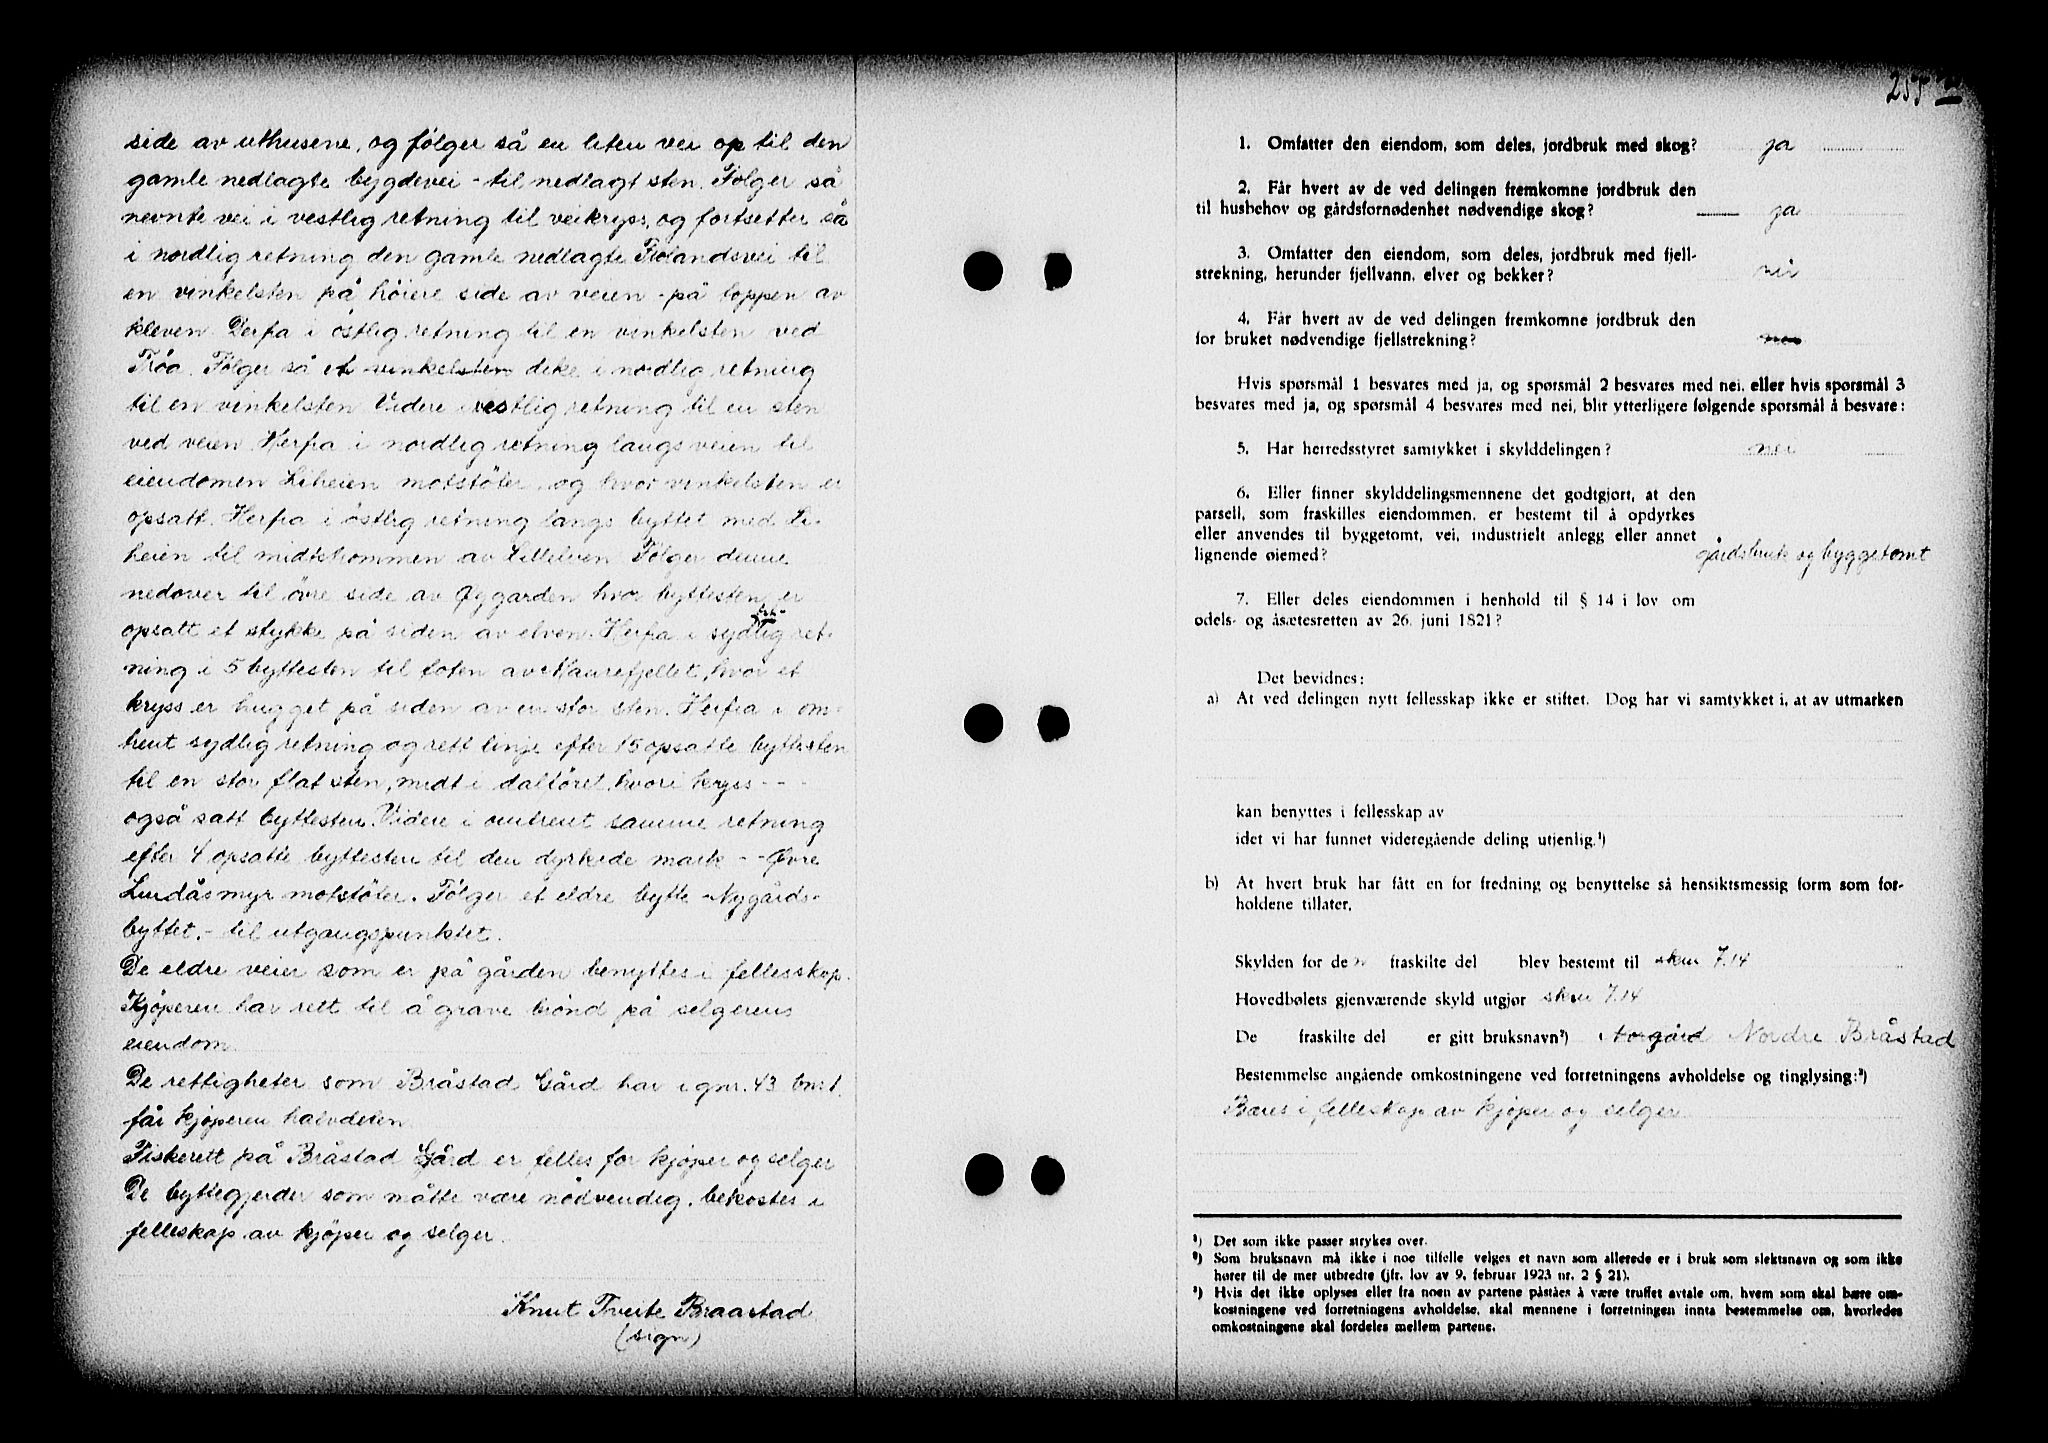 side av uthusene, og følger så en liten vei op til den
gamle nedlagte bygdevei - til nedlagt sten. Følger så
nevnte vei i vestlig retning til veikryss, og fortsetter så
i nordlig retning den gamle nedlagte Frølandsvei til
en vinkelsten på høiere side av veien - på toppen av
kleven. Derfra i østlig retning til en vinkelsten ved
Trøa. Følger så et vinkelsten dike i nordlig retning
til en vinkelsten. Videre i vestlig retning til en sten
ved veien. Herfra i nordlig retning langs veien til
eiendomen Liheien motstøter, og hvor vinkelsten er
opsatt. Herfra i østlig retning langs byttet med Li-
heien til midtstrommen av Lilleelven. Følger denne
nedover til øvre side av Øygarden hvor byttesten er
opsatt et stykke på siden av elven. Herfra i sydlig ret-
ning i 5 byttesten til foten av Maurefjellet, hvor et
kryss er hugget på siden av en stor sten. Herfra i om-
trent sydlig retning og rett linje efter 15 opsatte byttesten
til en stor flat sten, midt i daltøret, hvori kryss - - -
også satt byttesten. Videre i omtrent samme retning
efter 4 opsatte byttesten til den dyrkede mark - - Øvre
Lindåsmyr motstøter. Følger et eldre bytte - Nygårds-
byttet. - til utgangspunktet.
De eldre veier som er på gården benyttes i fellesskap.
Kjøperen har rett til å grave brønd på selgerens
eiendom.
De rettigheter som Bråstad Gård har i gnr. 43 bnr 1.
får kjøperen halvdelen
Fiskerett på Bråstad Gård er felles for kjøper og selger
De byttegjerder som måtte være nødvendig. bekostes i
felleskap av kjøper og selger.
Knut Tveite Braastad
(sign)
255
1. Omfatter den eiendom, som deles, jordbruk med skog? ja
2. Får hvert av de ved delingen fremkomne jordbruk den
til husbehov og gårdsfornødenhet nødvendige skog? ja
3. Omfatter den eiendom, som deles, jordbruk med fjell-
strekning, herunder fjellvann, elver og bekker? nei
4. Får hvert av de ved delingen fremkomne jordbruk den
for bruket nødvendige fjellstrekning?
Hvis spørsmål 1 besvares med ja, og spørsmål 2 besvares med nei, eller hvis spørsmål 3
besvares med ja, og spørsmål 4 besvares med nei, blir ytterligere følgende spørsmål å besvare:
5. Har herredsstyret samtykket i skylddelingen? nei
6. Eller finner skylddelingsmennene det godtgjort, at den
parsell, som fraskilles eiendommen, er bestemt til å opdyrkes
eller anvendes til byggetomt, vei, industrielt anlegg eller annet
lignende øiemed? gårdsbruk og byggetomt
7. Eller deles eiendommen i henhold til § 14 i lov om
odels- og åsætesretten av 26. juni 1821?
Det bevidnes:
a) At ved delingen nytt fellesskap ikke er stiftet. Dog har vi samtykket i, at av utmarken
kan benyttes i fellesskap av
idet vi har funnet videregående deling utjenlig.¹)
b) At hvert bruk har fått en for fredning og benyttelse så hensiktsmessig form som for-
holdene tillater,
Skylden for den fraskilte del blev bestemt til skm 7.14
Hovedbølets gjenværende skyld utgjør skm 7.14
De fraskilte del er gitt bruksnavn²) Norgård Nordre Bråstad
Bestemmelse angående omkostningene ved forretningens avholdelse og tinglysing:³)
Bæres i felleskap av kjøper og selger
¹) Det som ikke passer strykes over.
²) Som bruksnavn må ikke i noe tilfelle velges et navn som allerede er i bruk som slektsnavn og som ikke
hører til de mer utbredte (jfr. lov av 9. februar 1923 nr. 2 § 21).
³) Hvis det ikke oplyses eller fra noen av partene påståes å være truffet avtale om, hvem som skal bære om-
kostningene ved forretningens avholdelse, skal mennene i forretningen innta bestemmelse om, hvorledes
omkostningene skal fordeles mellem partene.